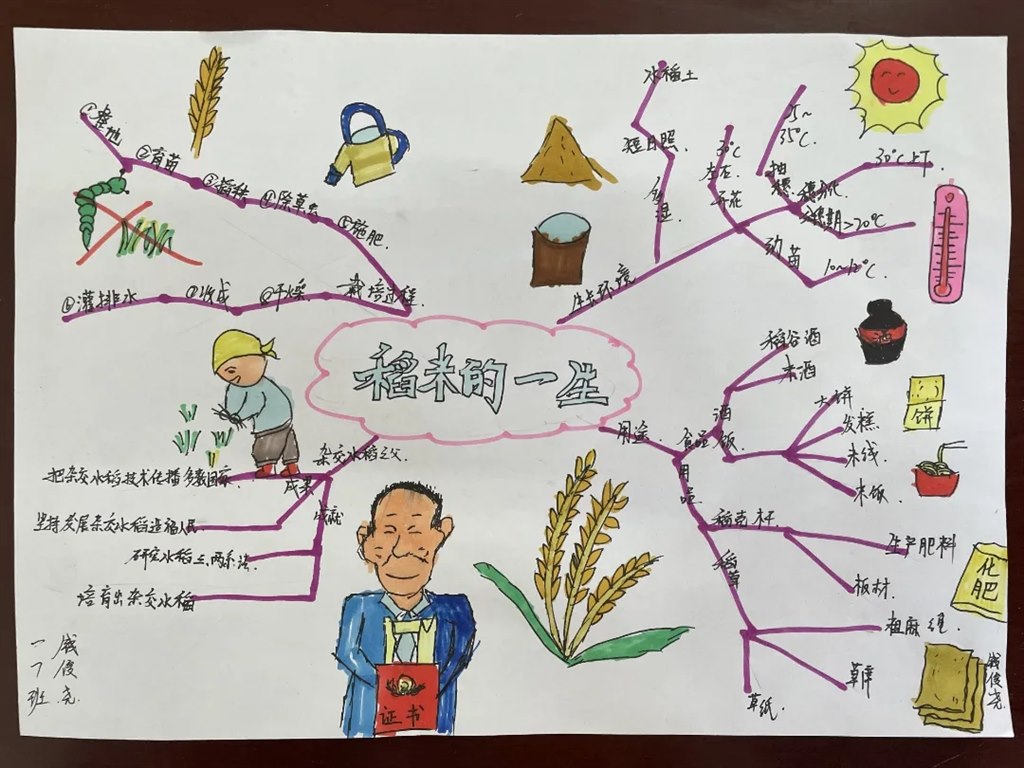 稻米的一生
栽培过程
①整地
②育苗
③插秧
④除草虫
⑤施肥
⑥灌排水
⑦收成
⑧干燥
生长环境
水稻土
短日照
30℃
左右
开花
35℃
穗分化
30℃上下
>20℃
幼苗
10~12℃
用途
食品
酒
稻谷酒
米酒
饭
大饼
发糕
米线
米饭
酒
饼
稻壳
生产肥料
板材
化肥
稻草
粗麻绳
草席
草纸
杂交水稻之父
成果
把杂交水稻技术传播多数国家
坚持发展杂交水稻造福人民
成就
研究水稻三,两系法
培育出杂交水稻
证书
一7班
钱俊尧
钱俊尧